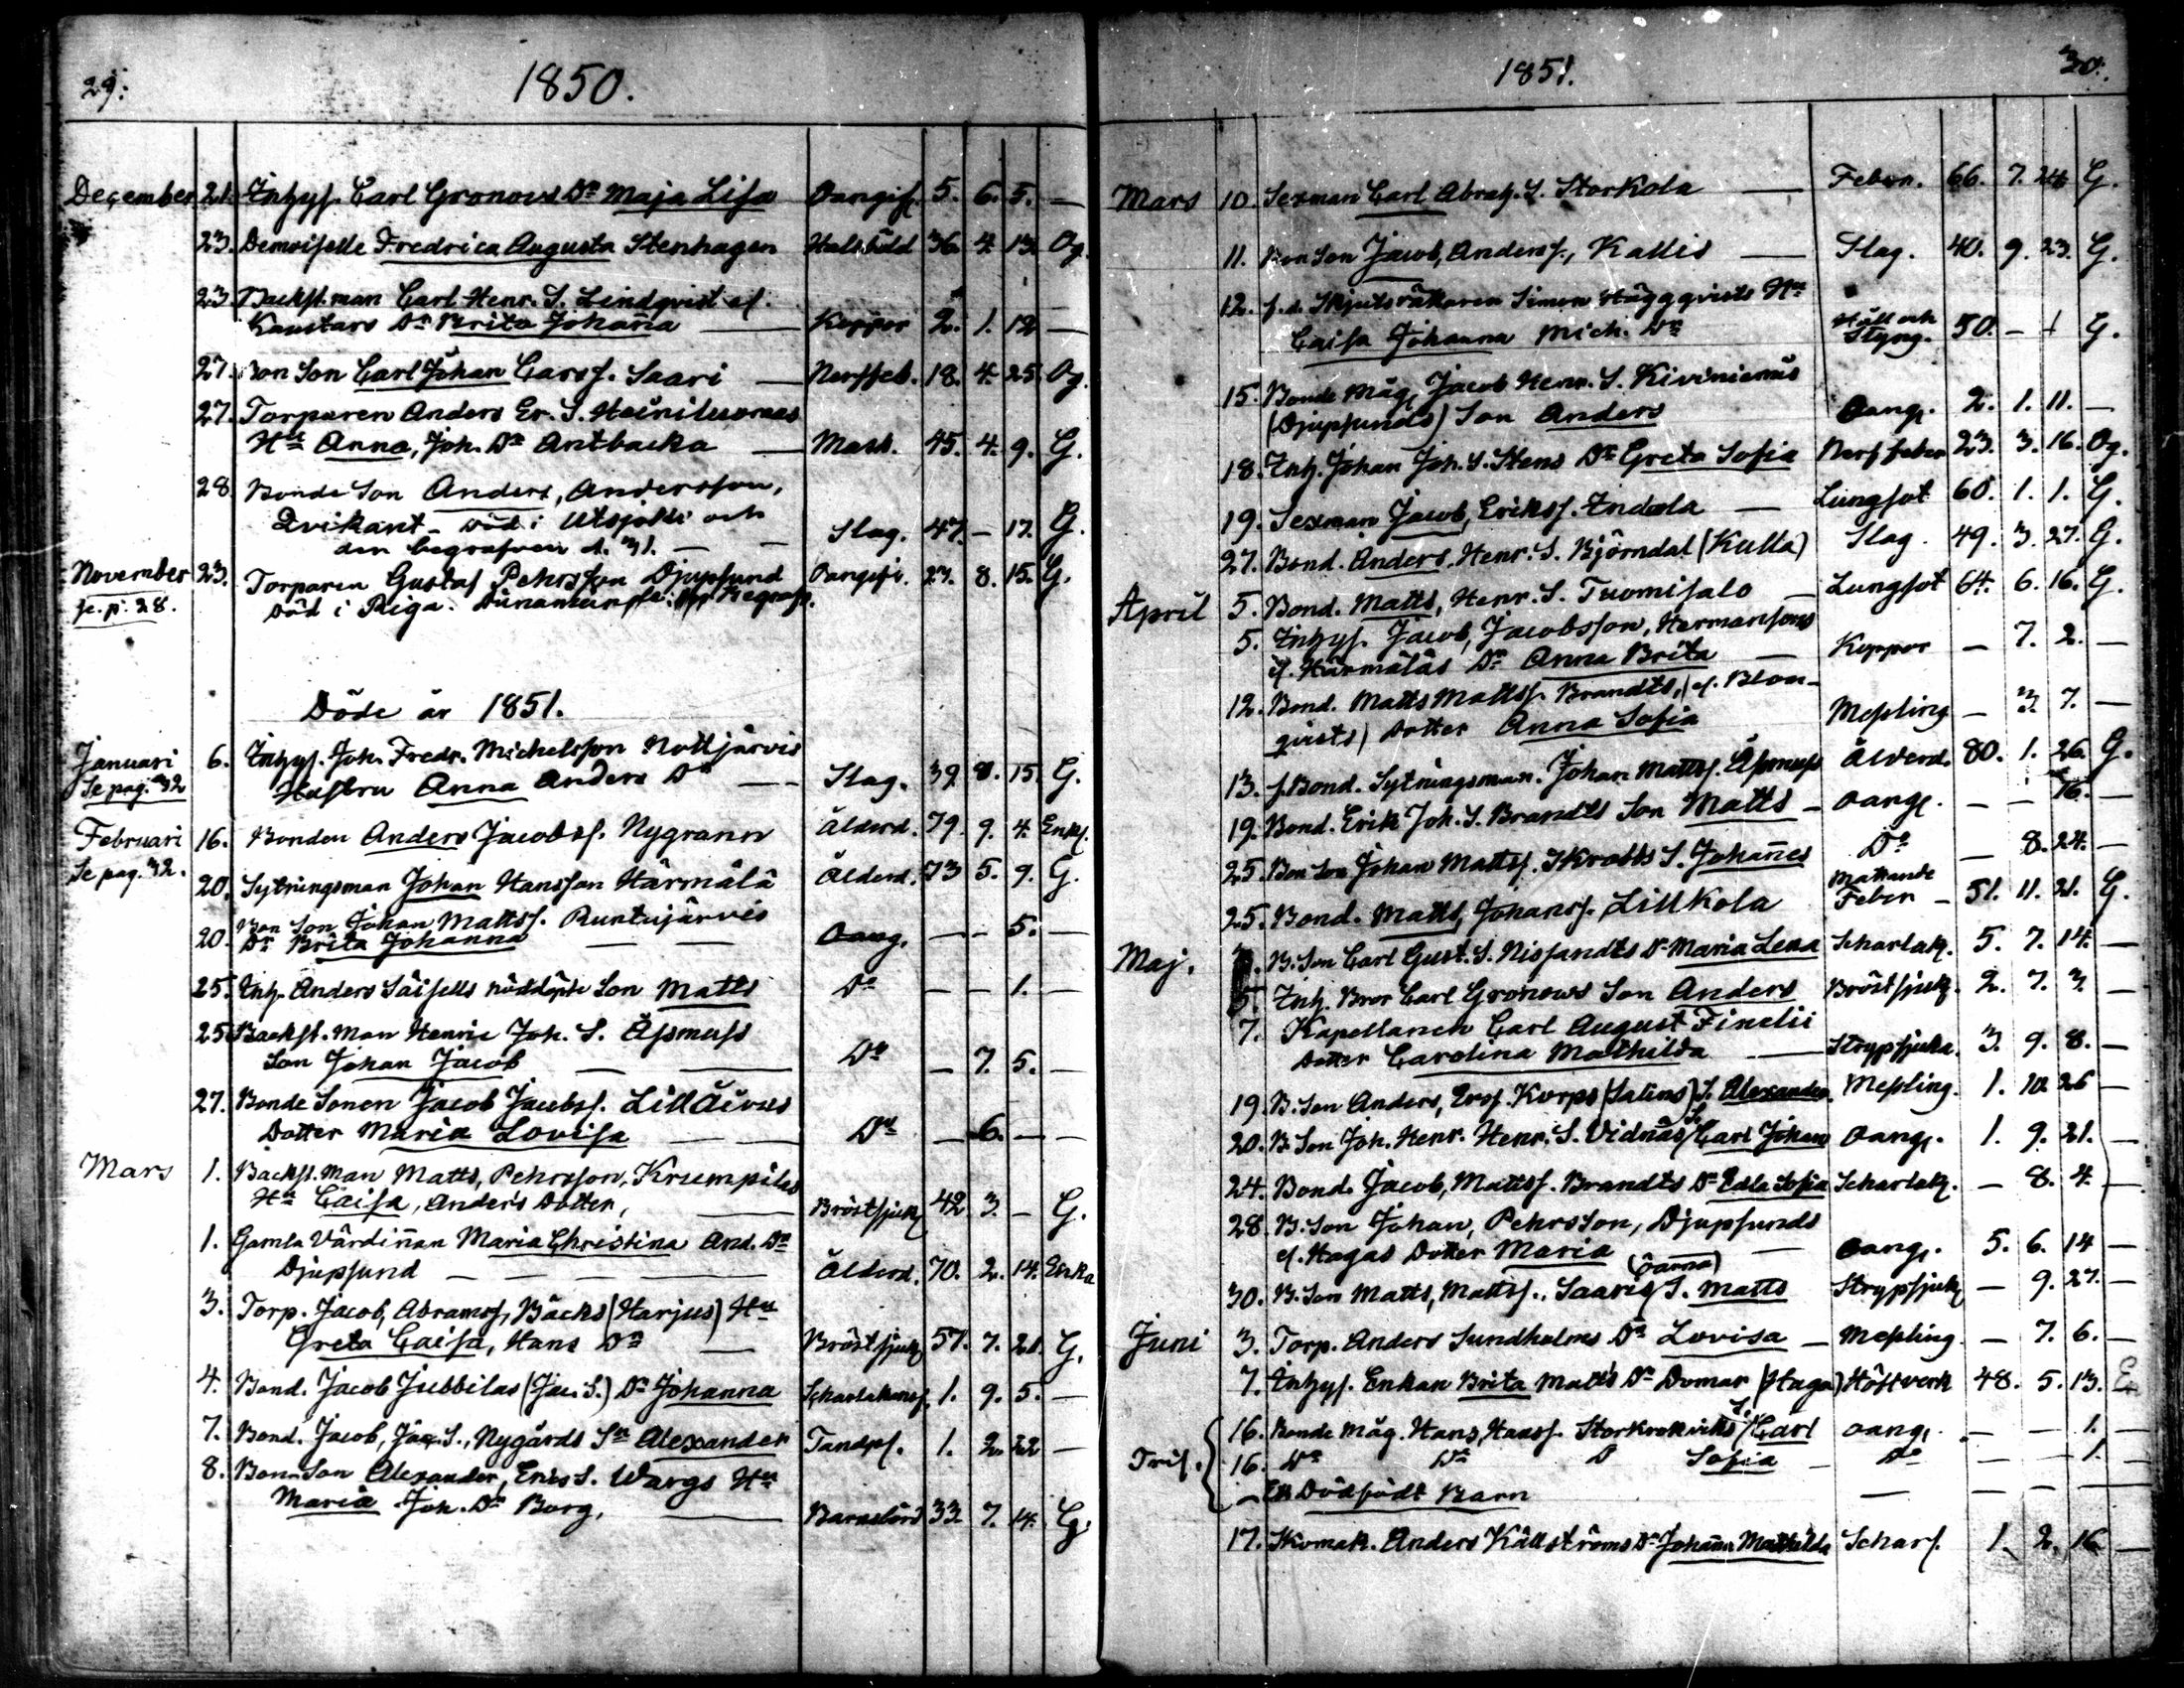 29.
1850.
December 21. Inhys. Carl Gronovs Dr Maja Lisa Oangif. 5. 6. 5. —
23. Demoiselle Fredrica Augusta Stenhagen Halsböld 36. 4. 13. Og.
23. Backst.man Carl Henr. S. Lindqvist el.
Kaustars Dr Brita Johanna — Koppor 2. 1. 12 —
27. Bon Son Carl Johan Carss. Saari — Nerffeb. 18. 4. 25. Og.
27. Torparen Anders Er. S.
Hu Anna, Joh. Dr Antbacka — Mask. 45. 4. 9. G.
28. Bonde Son Anders, Andersson,
Qvikant - död i Utsjoki och
den begrafven d. 31. — — Slag. 47. — 17. G.
November 23. Torparen Gustaf Pehrsson Djupsund Oangifv. 27. 8. 15. G.
se. p. 28. död i Riga.
Döde år 1851.
Januari 6. Inhys. Joh. Fredr. Michelsson Nottjärvis
Se pag. 32 Hustru Anna Anders Dr — Slag. 39. 8. 15. G.
Februari 16. Bonden Anders Jacobss. Nygrann Ålderd. 79. 9. 4. Enkl.
Se pag. 32. 20. Sytningsman Johan Hansson Härmälä Ålderd. 73 5. 9. G.
20. Bon Son Johan Mattss. Runtujärvis
Dr Brita Johanna — — Oang. — — 5. —
25. Inh. Anders Säisells nöddöpte Son Matts Do — — 1. —
25. Backst. Man Henric Joh. S. Åsmuss
Son Johan Jacob — — Do — 7. 5. —
27. Bonde Sonen Jacob Jacobss.
Dotter Maria Lovisa — — Do — 6. — —
Mars 1. Backst. Man Matts, Pehrsson, Krumpilas
Hu Caisa, Anders Dotter, — Bröstsjuk 42. 3. — G.
1. Gamla Värdinnan Maria Christina And. Dr
Djupsund — — — — Ålderd. 70. 2. 14. Enka
3. Torp. Jacob, Abramss, Bäcks (Harjus) Hu
Greta Caisa, Hans Dr — Bröstsjuk 57. 7. 21. G.
4. Bond. Jacob Jubbilas (Jac. S.) Dr Johanna Scharlakansf. 1. 9. 5. —
7. Bond. Jacob, Jac. S., Nygårds Sn Alexander Tandpl. 1. 2. 22 —
8. Bonn Son Alexander, Erics S. Wargs Hu
Maria Joh. Dr Borg, — Barnsbörd 33. 7. 14. G.
1851.
30.
Mars 10. Sexman Carl Abrah. S. Storkola — Feber. 66. 7. 24. G.
11. Bon Son Jacob, Anderss., Kallis — Slag. 40. 9. 23. G.
12. f.d. Skjutsrättaren Simon Häggqvists Hu
Caisa Johanna Mich. Dr Håll och Styng. 50. — 1 G.
15. Bonde Måg, Jacob Henr. S. Kiviniemis
(Djupsunds) Son Anders Oang. 2. 1. 11. —
18. Inh. Johan Joh. S. Stens Dr Greta Sofia Nerffeber 23. 3. 16. Og.
19. Sexman Jacob, Erikss. Indola — Lungsot 60. 1. 1. G.
27. Bond. Anders, Henr. S. Björndal (Kulla) Slag. 49. 3. 27. G.
April 5. Bond. Matts, Henr. S. Tuomisalo — Lungsot 64. 6. 16. G.
5. Inhys. Jacob, Jacobsson, Hermanssons
el. Härmäläs Dr Anna Brita — Koppor — 7. 2. —
12. Bond. Matts Mattss. Brandts, (el. Blom-
qvists) Dotter Anna Sofia Messling — 3. 7. —
13. f.Bond. Sytningsman. Johan Mattss. Åsmuss Ålderd. 80. 1. 26. G.
19. Bond. Erik Joh. S. Brandts Son Matts — Oang. — — 16. —
25. Bon Son Johan Mattss. Skrabbs S. Johannes Do — 8. 24. —
25. Bond. Matts, Johanss. Lillkola Mattande Feber — 51. 11. 21. G.
Maj. B. Son Carl Gust. S. Nissandts Dr Maria Lena Scharlak. 5. 7. 14. —
5. Inh. Bror Carl Gronows Son Anders Bröstsjuk. 2. 7. 3. —
7. Kapellanen Carl August Finelii
Dotter Carolina Mathilda — Strypsjuka. 3. 9. 8. —
19. B. Son Anders, Erss. Korps (Salins) S. Alexander Messling. 1. 10. 26 —
20. B. Son Joh. Henr. Henr. S. Vidnäs S. Carl Johan Oang. 1. 9. 21. —
24. Bond. Jacob, Mattss. Brandts Dr Edla Sofia Scharlak. — 8. 4. —
28. B. Son Johan, Pehrsson, Djupsunds
el. Hagas Dotter Maria — Oang. 5. 6. 14 —
30. B. Son Matts, Mattss., Saaris (Öanna) S. Matts Strypsjuk — 9. 27. —
Juni 3. Torp. Anders Sundholms Dr Lovisa — Messling. — 7. 6. —
7. Inhys. Enkan Brita Matts Dr Domar (Haga) Höftverk 48. 5. 13. En
16. Bonde Måg. Hans, Hanss. Storkrokviks S. Carl oang. — — 1.
Tril. 16. Do Do D Sofia — Do — — 1.
— Ett Dödfödt Barn — — — —
17. Skomak. Anders Källströms Dr Johanna Mathilda Scharl. 1. 2. 16 —